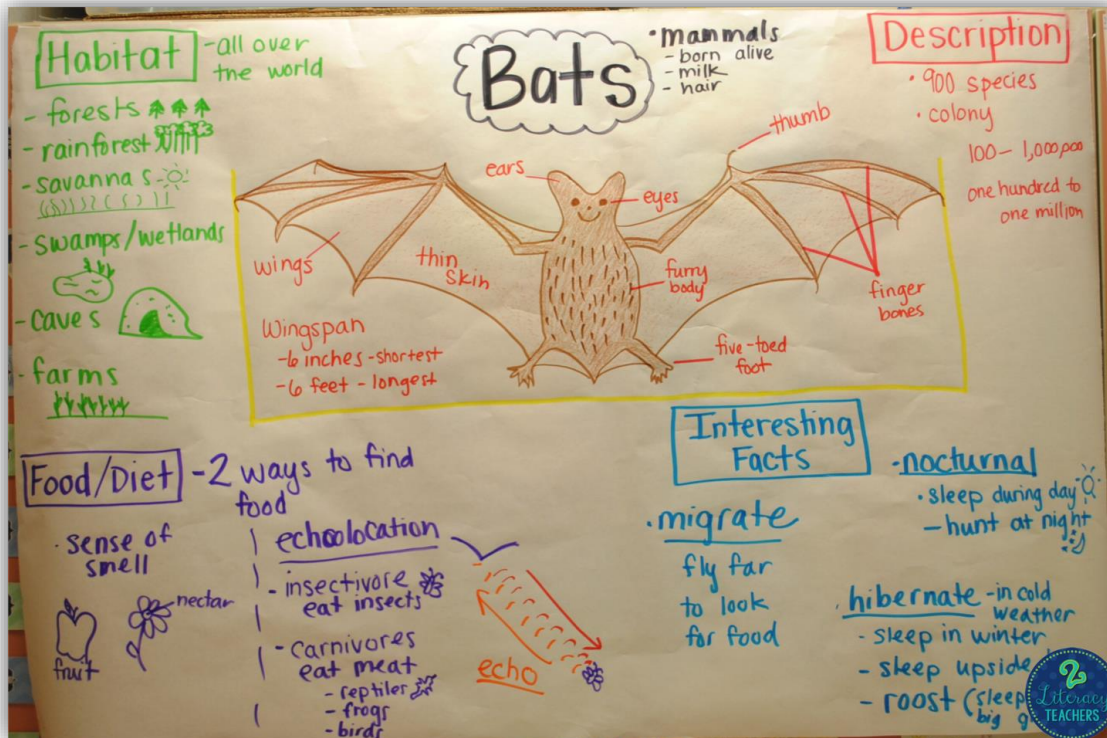 Bats
• mammals
- born alive
- milk
- hair
Habitat
- all over
the world
- forests
- rainforest
- savanna s
- swamps/wetlands
- caves
- farms
Description
• 900 species
• colony
100 - 1,000,000
one hundred to
one million
thumb
ears
eyes
wings
thin
skin
furry
body
finger
bones
five-toed
foot
Wingspan
- 6 inches - shortest
- 6 feet - longest
Food/Diet
- 2 ways to find
food
• sense of
smell
nectar
fruit
echoolocation
- insectivore
eat insects
- carnivores
eat meat
- reptiles
- frogs
- birds
echo
Interesting
Facts
• migrate
fly far
to look
for food
• nocturnal
• sleep during day
- hunt at night
hibernate - in cold
weather
- sleep in winter
- sleep upside
- roost (sleep
big
2
Literacy
TEACHERS